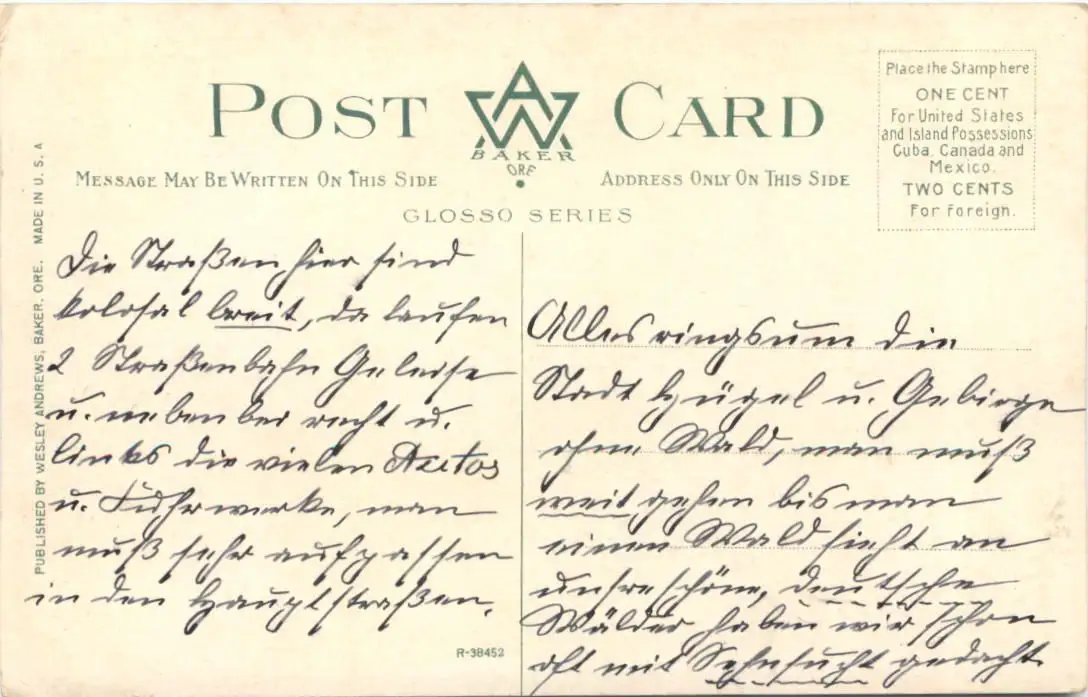 POST CARD
AW
BAKER
ORE
MESSAGE MAY BE WRITTEN ON THIS SIDE
ADDRESS ONLY ON THIS SIDE
GLOSSO SERIES
Place the Stamp here
ONE CENT
For United States
and Island Possessions
Cuba, Canada and
Mexico.
TWO CENTS
For Foreign.
PUBLISHED BY WESLEY ANDREWS, BAKER, ORE. MADE IN U. S. A
Die Straßen hier sind
kolosal breit, da laufen
2 Straßenbahn Geleise
u. neben bei recht u.
links die vielen Autos
u. Fuhrwerke, man
muß sehr aufpassen
in den Hauptstraßen.
R-38452
Alles ringsum die
Stadt Hügel u. Gebirge
ohne Wald, man muß
weit gehen bis man
einen Wald sieht an
unsre schöne, deutsche
Wälder haben wir schon
oft mit Sehnsucht gedacht.